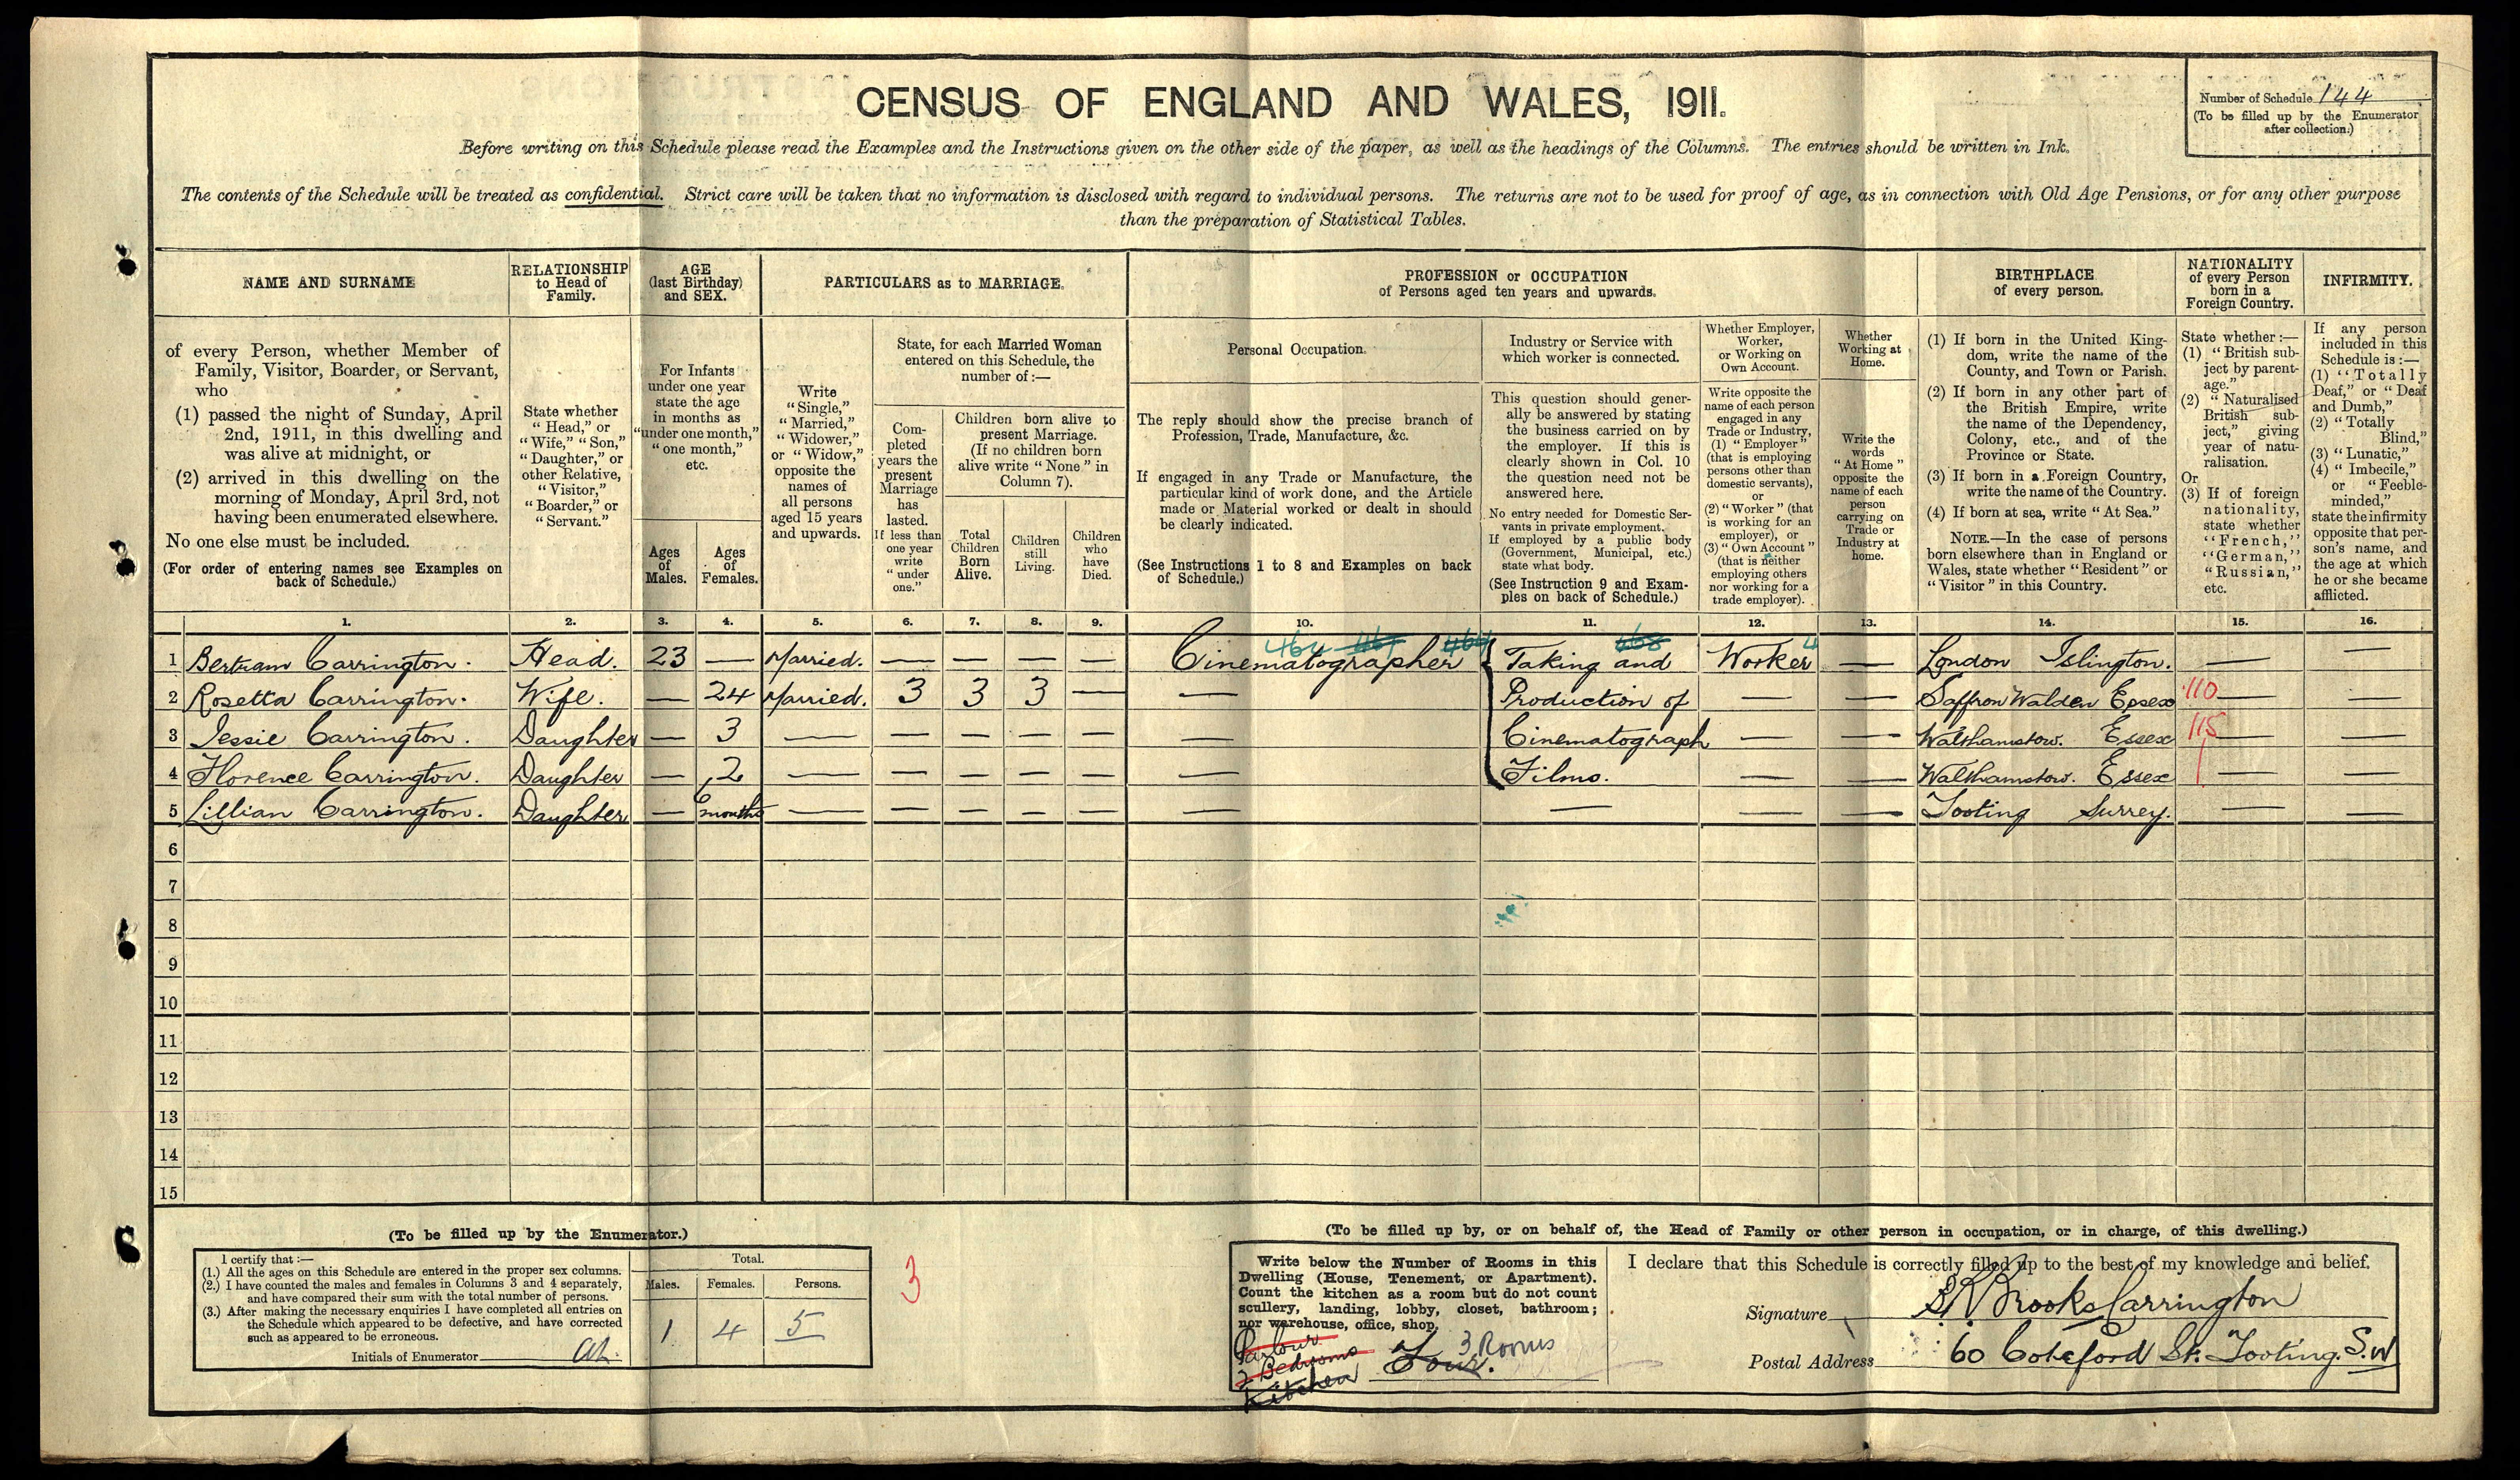 CENSUS OF ENGLAND AND WALES, 1911.
Number of Schedule 144
(To be filled up by the Enumerator
after collection.)
Before writing on this Schedule please read the Examples and the Instructions given on the other side of the paper, as well as the headings of the Columns. The entries should be written in Ink.
The contents of the Schedule will be treated as confidential. Strict care will be taken that no information is disclosed with regard to individual persons. The returns are not to be used for proof of age, as in connection with Old Age Pensions, or for any other purpose
than the preparation of Statistical Tables.
NAME AND SURNAME
of every Person, whether Member of
Family, Visitor, Boarder, or Servant,
who
(1) passed the night of Sunday, April
2nd, 1911, in this dwelling and
was alive at midnight, or
(2) arrived in this dwelling on the
morning of Monday, April 3rd, not
having been enumerated elsewhere.
No one else must be included.
(For order of entering names see Examples on
back of Schedule.)
RELATIONSHIP
to Head of
Family.
State whether
"Head," or
"Wife," "Son,"
"Daughter," or
other Relative,
"Visitor,"
"Boarder," or
"Servant."
AGE
(last Birthday)
and SEX.
For Infants
under one year
state the age
in months as
"under one month,"
"one month,"
etc.
Ages
of
Males.
Ages
of
Females.
PARTICULARS as to MARRIAGE.
Write
"Single,"
"Married,"
"Widower,"
or "Widow,"
opposite the
names of
all persons
aged 15 years
and upwards.
State, for each Married Woman
entered on this Schedule, the
number of:—
Com-
pleted
years the
present
Marriage
has
lasted.
If less than
one year
write
"under
one."
Children born alive to
present Marriage.
(If no children born
alive write "None" in
Column 7).
Total
Children
Born
Alive.
Children
still
Living.
Children
who
have
Died.
PROFESSION or OCCUPATION
of Persons aged ten years and upwards.
Personal Occupation.
The reply should show the precise branch of
Profession, Trade, Manufacture, &c.
If engaged in any Trade or Manufacture, the
particular kind of work done, and the Article
made or Material worked or dealt in should
be clearly indicated.
(See Instructions 1 to 8 and Examples on back
of Schedule.)
Industry or Service with
which worker is connected.
This question should gener-
ally be answered by stating
the business carried on by
the employer. If this is
clearly shown in Col. 10
the question need not be
answered here.
No entry needed for Domestic Ser-
vants in private employment.
If employed by a public body
(Government, Municipal, etc.)
state what body.
(See Instruction 9 and Exam-
ples on back of Schedule.)
Whether Employer,
Worker,
or Working on
Own Account.
Write opposite the
name of each person
engaged in any
Trade or Industry,
(1) "Employer"
(that is employing
persons other than
domestic servants),
or
(2) "Worker" (that
is working for an
employer), or
(3) "Own Account"
(that is neither
employing others
nor working for a
trade employer).
Whether
Working at
Home.
Write the
words
"At Home"
opposite the
name of each
person
carrying on
Trade or
Industry at
home.
BIRTHPLACE
of every person.
(1) If born in the United King-
dom, write the name of the
County, and Town or Parish.
(2) If born in any other part of
the British Empire, write
the name of the Dependency,
Colony, etc., and of the
Province or State.
(3) If born in a Foreign Country,
write the name of the Country.
(4) If born at sea, write "At Sea."
NOTE.—In the case of persons
born elsewhere than in England or
Wales, state whether "Resident" or
"Visitor" in this Country.
NATIONALITY
of every Person
born in a
Foreign Country.
State whether:—
(1) "British sub-
ject by parent-
age."
(2) "Naturalised
British sub-
ject," giving
year of natu-
ralisation.
Or
(3) If of foreign
nationality,
state whether
"French,"
"German,"
"Russian,"
etc.
INFIRMITY.
If any person
included in this
Schedule is:—
(1) "Totally
Deaf," or "Deaf
and Dumb,"
(2) "Totally
Blind,"
(3) "Lunatic,"
(4) "Imbecile,"
or "Feeble-
minded,"
state the infirmity
opposite that per-
son's name, and
the age at which
he or she became
afflicted.
1. 2. 3. 4. 5. 6. 7. 8. 9. 10. 11. 12. 13. 14. 15. 16.
464 464 468 4
1 Bertram Carrington. Head. 23 — Married. — — — — Cinematographer Taking and Worker — London Islington. — —
2 Rosetta Carrington. Wife. — 24 Married. 3 3 3 — — Production of — — Saffron Walden Essex 110 — —
3 Jessie Carrington. Daughter — 3 — — — — — — Cinematograph — — Walthamstow. Essex 115 — —
4 Florence Carrington. Daughter — 2 — — — — — — Films. — — Walthamstow. Essex — —
5 Lillian Carrington. Daughter — months — — — — — — — — — Tooting Surrey. — —
6
7
8
9
10
11
12
13
14
15
(To be filled up by the Enumerator.)
I certify that:—
(1.) All the ages on this Schedule are entered in the proper sex columns.
(2.) I have counted the males and females in Columns 3 and 4 separately,
and have compared their sum with the total number of persons.
(3.) After making the necessary enquiries I have completed all entries on
the Schedule which appeared to be defective, and have corrected
such as appeared to be erroneous.
Initials of Enumerator
Total.
Males. Females. Persons.
1 4 5
3
(To be filled up by, or on behalf of, the Head of Family or other person in occupation, or in charge, of this dwelling.)
Write below the Number of Rooms in this
Dwelling (House, Tenement, or Apartment).
Count the kitchen as a room but do not count
scullery, landing, lobby, closet, bathroom;
nor warehouse, office, shop.
Parlour
2 Bedrooms
Kitchen
Four. 3 Rooms
I declare that this Schedule is correctly filled up to the best of my knowledge and belief.
Signature Brooks Carrington
Postal Address 60 Coteford St. Tooting. S.W